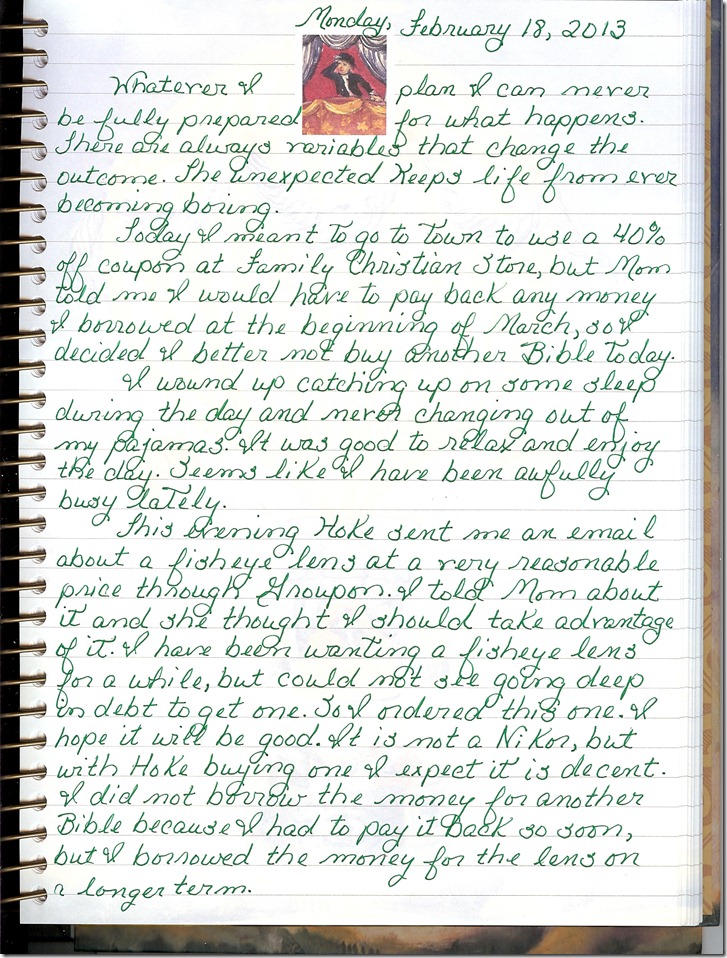 Monday, February 18, 2013
Whatever I plan I can never
be fully prepared for what happens.
There are always variables that change the
outcome. The unexpected keeps life from ever
becoming boring.
Today I meant to go to town to use a 40%
off coupon at Family Christian Store, but Mom
told me I would have to pay back any money
I borrowed at the beginning of March, so I
decided I better not buy another Bible today.
I wound up catching up on some sleep
during the day and never changing out of
my pajamas. It was good to relax and enjoy
the day. Seems like I have been awfully
busy lately.
This evening Hoke sent me an email
about a fisheye lens at a very reasonable
price through Groupon. I told Mom about
it and she thought I should take advantage
of it. I have been wanting a fisheye lens
for a while, but could not see going deep
in debt to get one. So I ordered this one. I
hope it will be good. It is not a Nikor, but
with Hoke buying one I expect it is decent.
I did not borrow the money for another
Bible because I had to pay it back so soon,
but I borrowed the money for the lens on
a longer term.